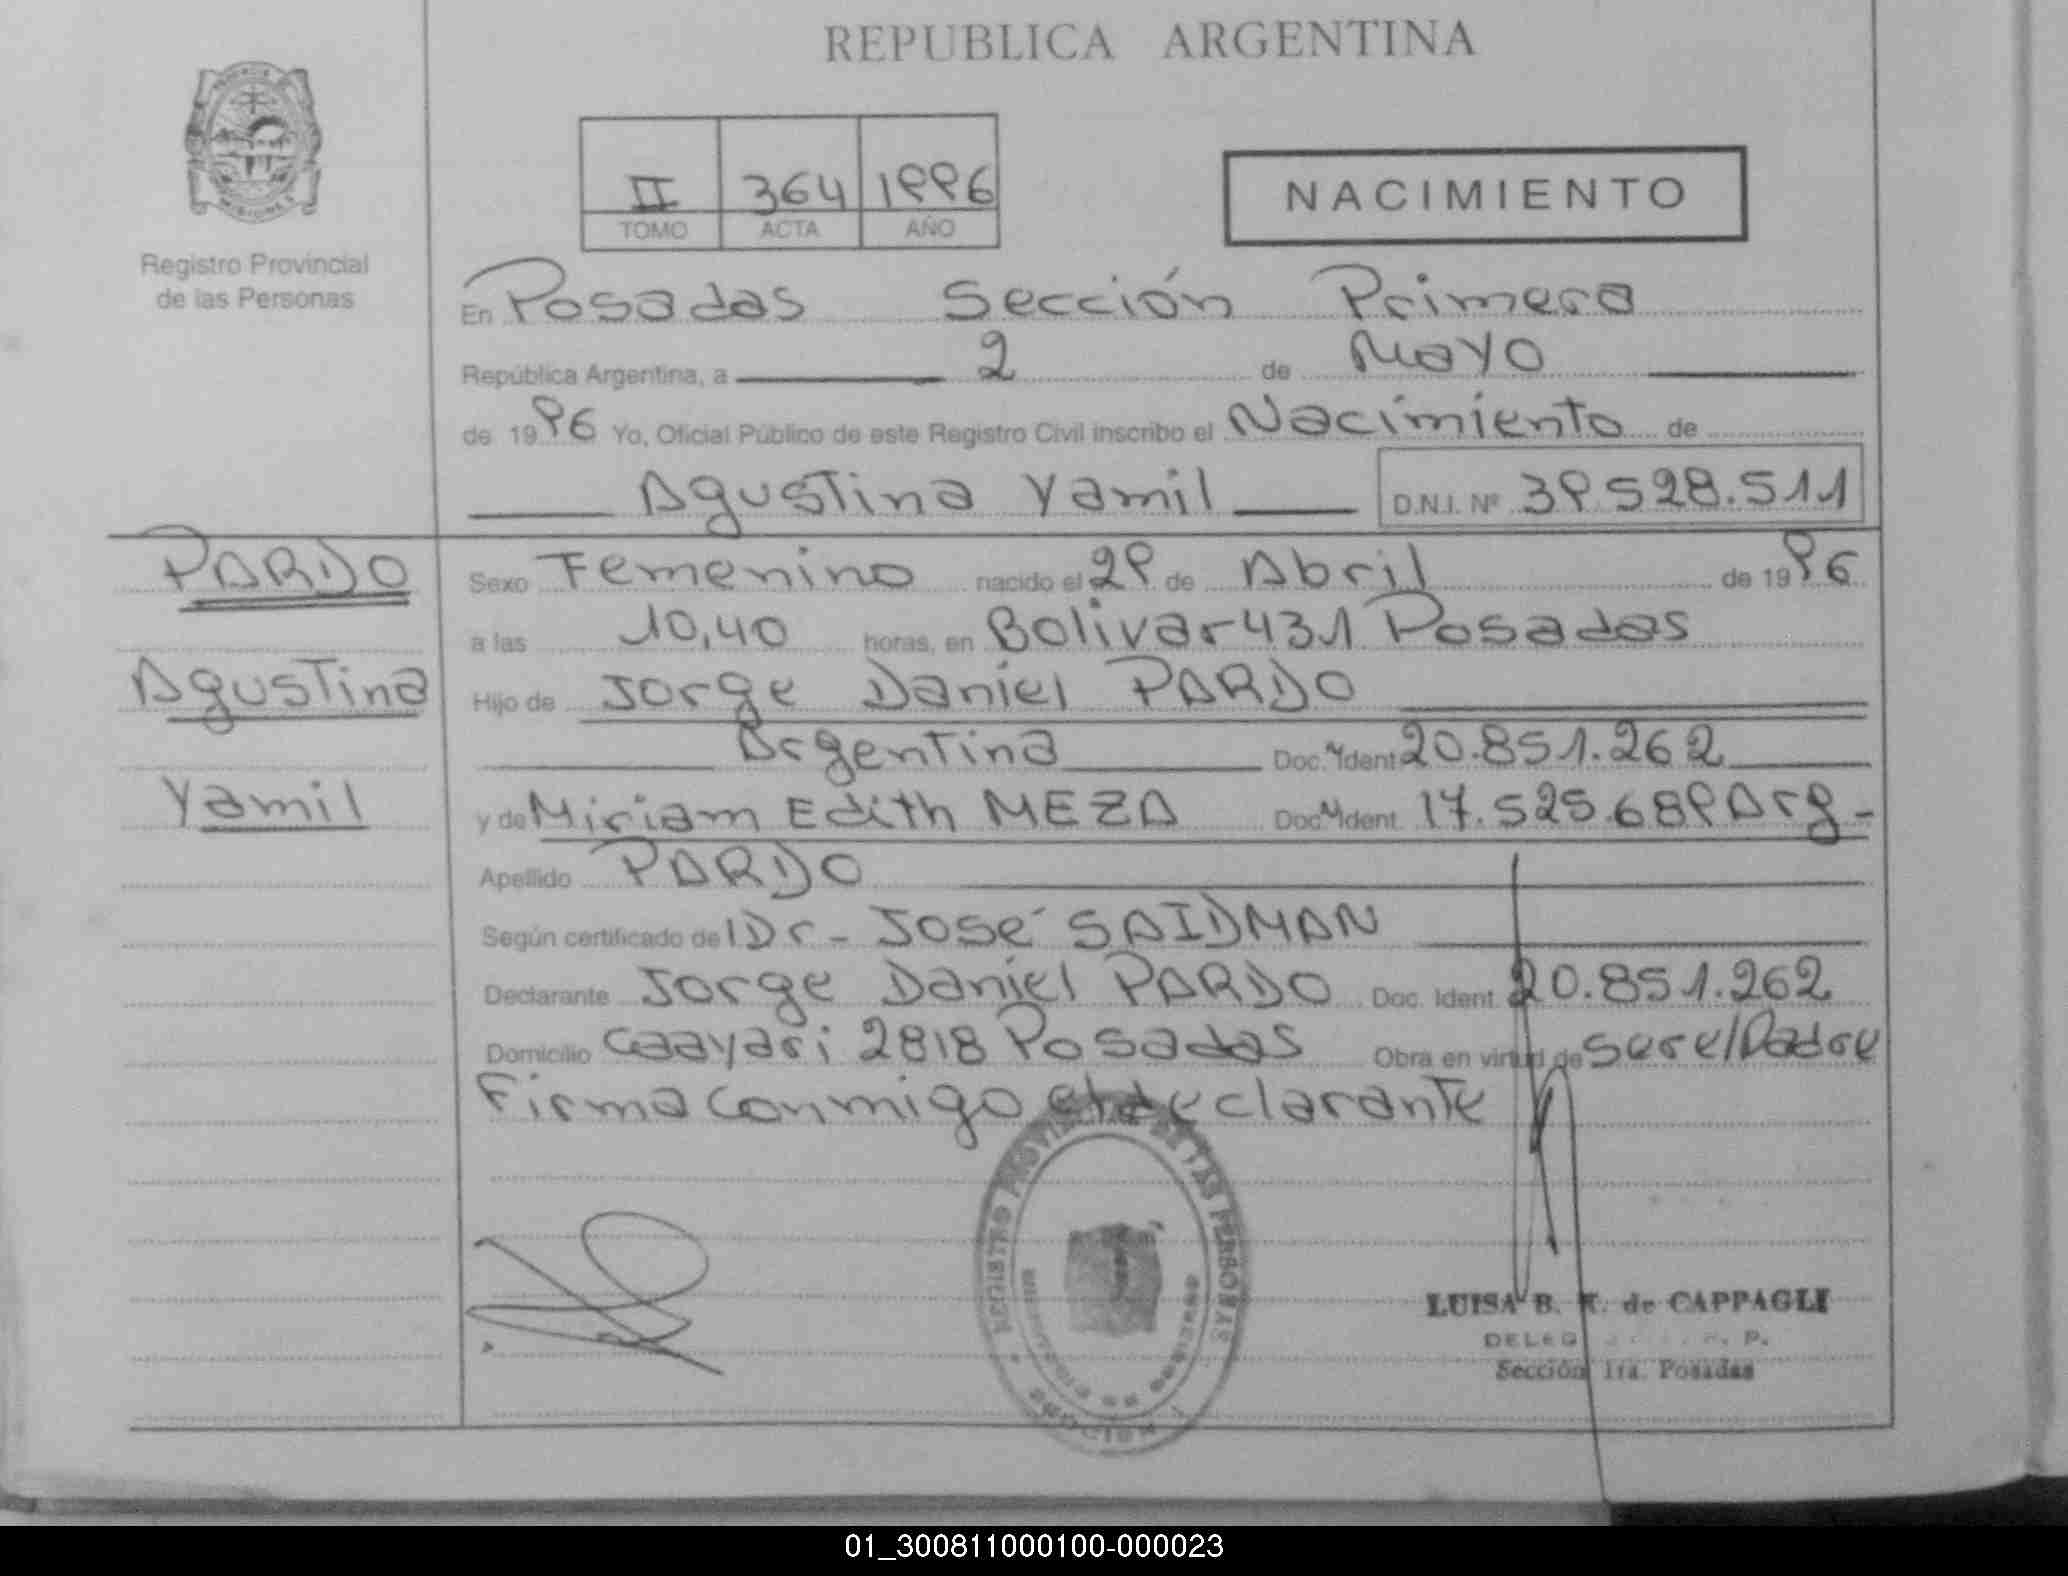 REPUBLICA ARGENTINA
MISIONES
Registro Provincial
de las Personas
II 364 1996
TOMO ACTA AÑO
NACIMIENTO
En Posadas Sección Primera
República Argentina, a 2 de Mayo
de 1996 Yo, Oficial Público de este Registro Civil inscribo el Nacimiento de
Agustina Yamil D.N.I. Nº 39.528.511
PARDO
Agustina
Yamil
Sexo Femenino nacido el 29 de Abril de 1996
a las 10,40 horas, en Bolivar 431 Posadas
Hijo de Jorge Daniel PARDO
Argentina Doc. Ident 20.851.262
y de Miriam Edith MEZA Doc Ident. 17.525.689 Arg-
Apellido PARDO
Según certificado de Dr- José SAIDMAN
Declarante Jorge Daniel PARDO Doc. Ident. 20.851.262
Domicilio Caayari 2818 Posadas Obra en virtud de ser el Padre
Firma conmigo el declarante
REGISTRO PROVINCIAL DE LAS PERSONAS
LUISA B. K. de CAPPAGLI
Sección 1ra. Posadas
01_300811000100-000023